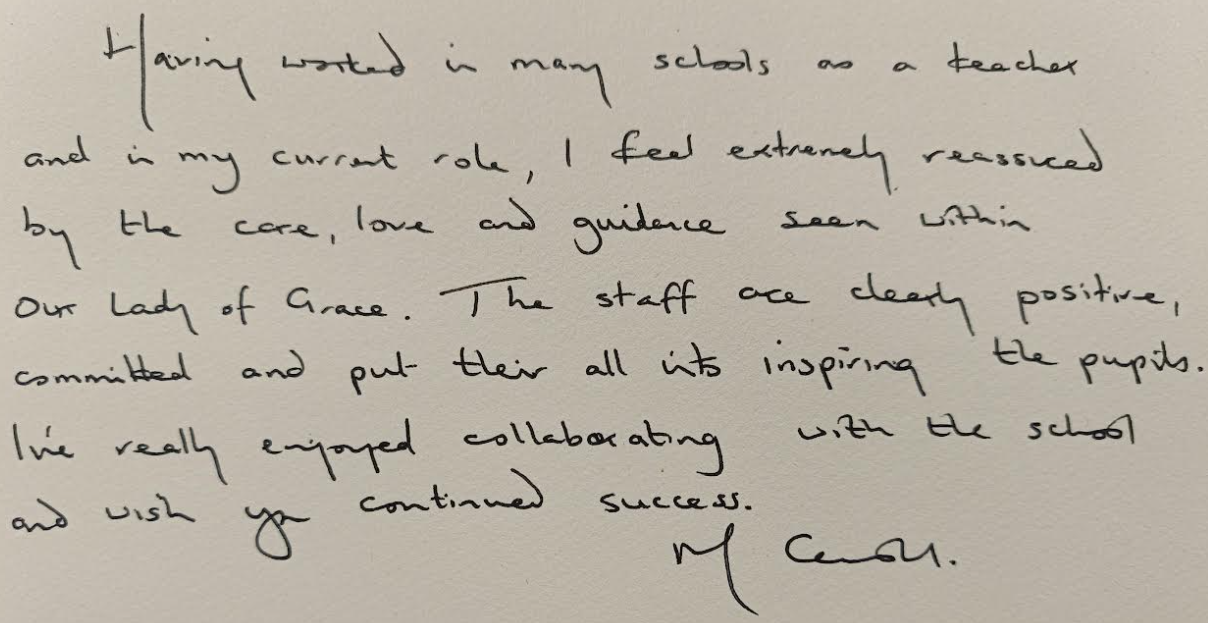 Having worked in many schools as a teacher
and in my current role, I feel extremely reassured
by the care, love and guidance seen within
Our Lady of Grace. The staff are clearly positive,
committed and put their all into inspiring the pupils.
I've really enjoyed collaborating with the school
and wish you continued success.
M